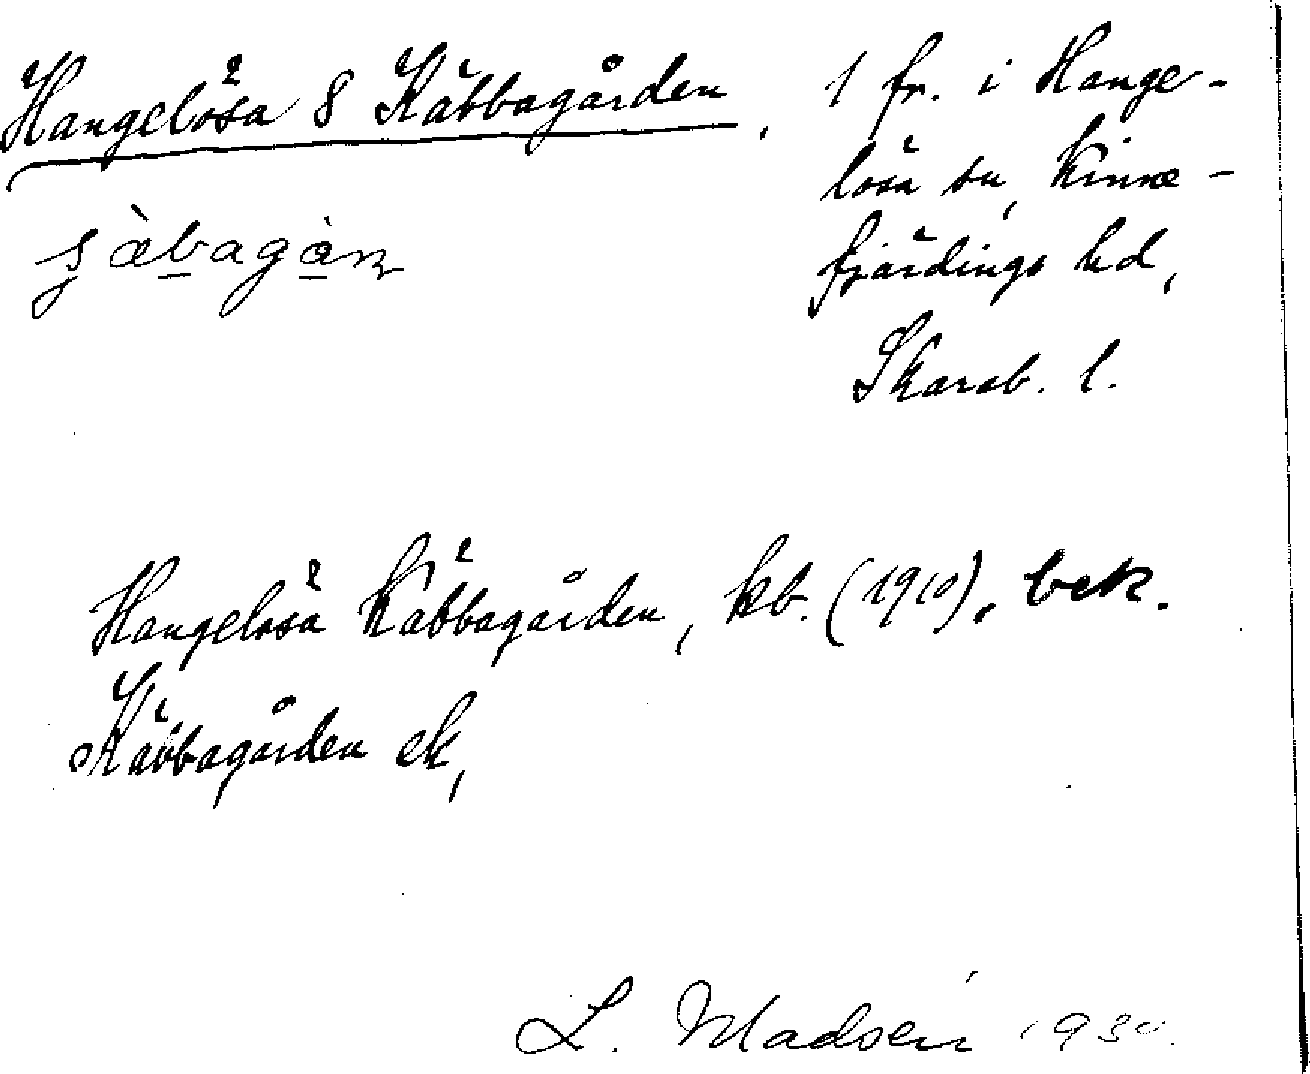 Hangelösa 8 Käbbagården, 1 fr. i Hange-
lösa sn, Kinne-
fjärdings hd,
Skarab. l.
Hangelösä Käbbagården, kb. (1910), bek.
Käbbagården ek,
L. Madsén 1930.